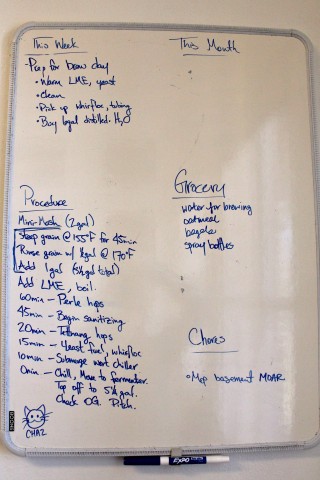 This Week
- Prep for brew day
• Warm LME, yeast
• clean
• Pick up whirfloc, tubing
• Buy 1 gal distilled H2O
This Month
Procedure
Mini-Mash (2 gal)
Steep grain @ 155°F for 45min
Rinse grain w/ gal @ 170°F
Add 1 gal (3½ gal total)
Add LME, boil.
60min - Perle hops
45min - Begin sanitizing
20min - Tettnang hops
15min - Yeast fuel, whirfloc
10min - Submerge wort chiller
0min - Chill, Move to fermenter.
Top off to 5¼ gal.
Check OG. Pitch.
CHAZ
Grocery
water for brewing
oatmeal
bagels
spray bottles
Chores
• Mop basement MOAR
EXPO